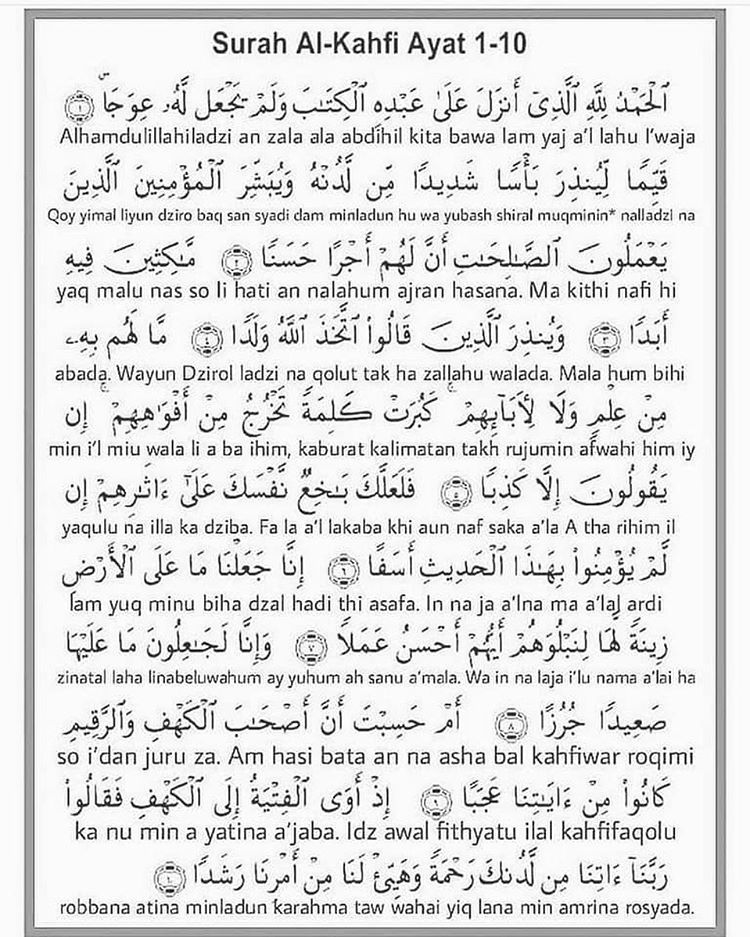 Surah Al-Kahfi Ayat 1-10
ٱلْحَمْدُ لِلَّهِ ٱلَّذِىٓ أَنزَلَ عَلَىٰ عَبْدِهِ ٱلْكِتَـٰبَ وَلَمْ يَجْعَل لَّهُۥ عِوَجَاۜ ١
Alhamdulillahiladzi an zala ala abdihil kita bawa lam yaj a'l lahu I'waja
قَيِّمًا لِّيُنذِرَ بَأْسًا شَدِيدًا مِّن لَّدُنْهُ وَيُبَشِّرَ ٱلْمُؤْمِنِينَ ٱلَّذِينَ
Qoy yimal liyun dziro baq san syadi dam minladun hu wa yubash shiral muqminin* nalladzi na
يَعْمَلُونَ ٱلصَّـٰلِحَـٰتِ أَنَّ لَهُمْ أَجْرًا حَسَنًا ٢ مَّـٰكِثِينَ فِيهِ
yaq malu nas so li hati an nalahum ajran hasana. Ma kithi nafi hi
أَبَدًا ٣ وَيُنذِرَ ٱلَّذِينَ قَالُوا۟ ٱتَّخَذَ ٱللَّهُ وَلَدًا ٤ مَّا لَهُم بِهِۦ
abada. Wayun Dzirol ladzi na qolut tak ha zallahu walada. Mala hum bihi
مِنْ عِلْمٍ وَلَا لِـَٔابَآئِهِمْ ۚ كَبُرَتْ كَلِمَةً تَخْرُجُ مِنْ أَفْوَٰهِهِمْ ۚ إِن
min i'l miu wala li a ba ihim, kaburat kalimatan takh rujumin afwahi him iy
يَقُولُونَ إِلَّا كَذِبًا ٥ فَلَعَلَّكَ بَـٰخِعٌ نَّفْسَكَ عَلَىٰٓ ءَاثَـٰرِهِمْ إِن
yaqulu na illa ka dziba. Fa la a'l lakaba khi aun naf saka a'la A tha rihim il
لَّمْ يُؤْمِنُوا۟ بِهَـٰذَا ٱلْحَدِيثِ أَسَفًا ٦ إِنَّا جَعَلْنَا مَا عَلَى ٱلْأَرْضِ
lam yuq minu biha dzal hadi thi asafa. In na ja a'lna ma a'lal ardi
زِينَةً لَّهَا لِنَبْلُوَهُمْ أَيُّهُمْ أَحْسَنُ عَمَلًا ٧ وَإِنَّا لَجَـٰعِلُونَ مَا عَلَيْهَا
zinatal laha linabeluwahum ay yuhum ah sanu a'mala. Wa in na laja i'lu nama a'lai ha
صَعِيدًا جُرُزًا ٨ أَمْ حَسِبْتَ أَنَّ أَصْحَـٰبَ ٱلْكَهْفِ وَٱلرَّقِيمِ
so i'dan juru za. Am hasi bata an na asha bal kahfiwar roqimi
كَانُوا۟ مِنْ ءَايَـٰتِنَا عَجَبًا ٩ إِذْ أَوَى ٱلْفِتْيَةُ إِلَى ٱلْكَهْفِ فَقَالُوا۟
ka nu min a yatina a'jaba. Idz awal fithyatu ilal kahfifaqolu
رَبَّنَآ ءَاتِنَا مِن لَّدُنكَ رَحْمَةً وَهَيِّئْ لَنَا مِنْ أَمْرِنَا رَشَدًا ١٠
robbana atina minladun karahma taw wahai yiq lana min amrina rosyada.